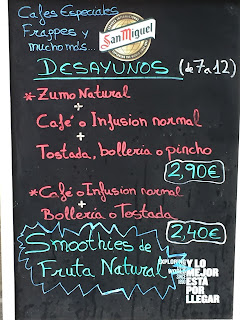 Cafes Especiales
Frappes y
mucho más...
San Miguel
DESAYUNOS (de 7 a 12)
* Zumo Natural
+
Café o Infusion normal
+
Tostada, bolleria o pincho
2,90€
* Café o Infusion normal
+
Bollería o Tostada
2,40€
Smoothies de
Fruta Natural
EXPLORING
WORLD
Y LO
MEJOR
ESTÁ
POR
LLEGAR